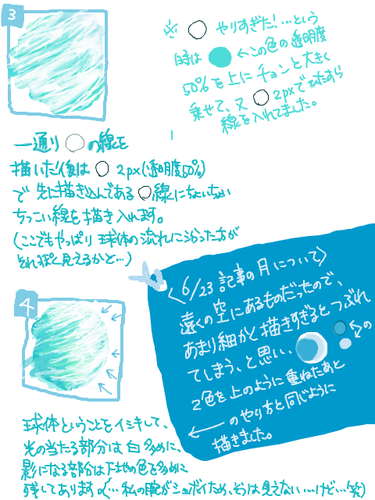 3
※ ○ やりすぎた!…という
時は ● ←この色の透明度
50%を上にチョンと大きく
乗せて、又 ○ 2pxで
線を入れてました。
一通り ○ の線を
描いた後は ○ 2px(透明度50%)
で 先に描き込んである ○ 線にちょいちょい
ちっこい線を描き入れます。
(ここでもやっぱり球体の流れにそった方が
それっぽく見えるかと…)
<6/23 記事の月について>
遠くの空にあるものだったので、
あまり細かく描きすぎるとつぶれ
てしまう、と思い、
の
2色を上のように重ねたあと
← のやり方と同じように
描きました。
4
球体ということをイシキして、
光の当たる部分は白多めに、
影になる部分は下地の色を多めに
残してあります 私の腕がショボイため、そうは見えない…けど…笑)